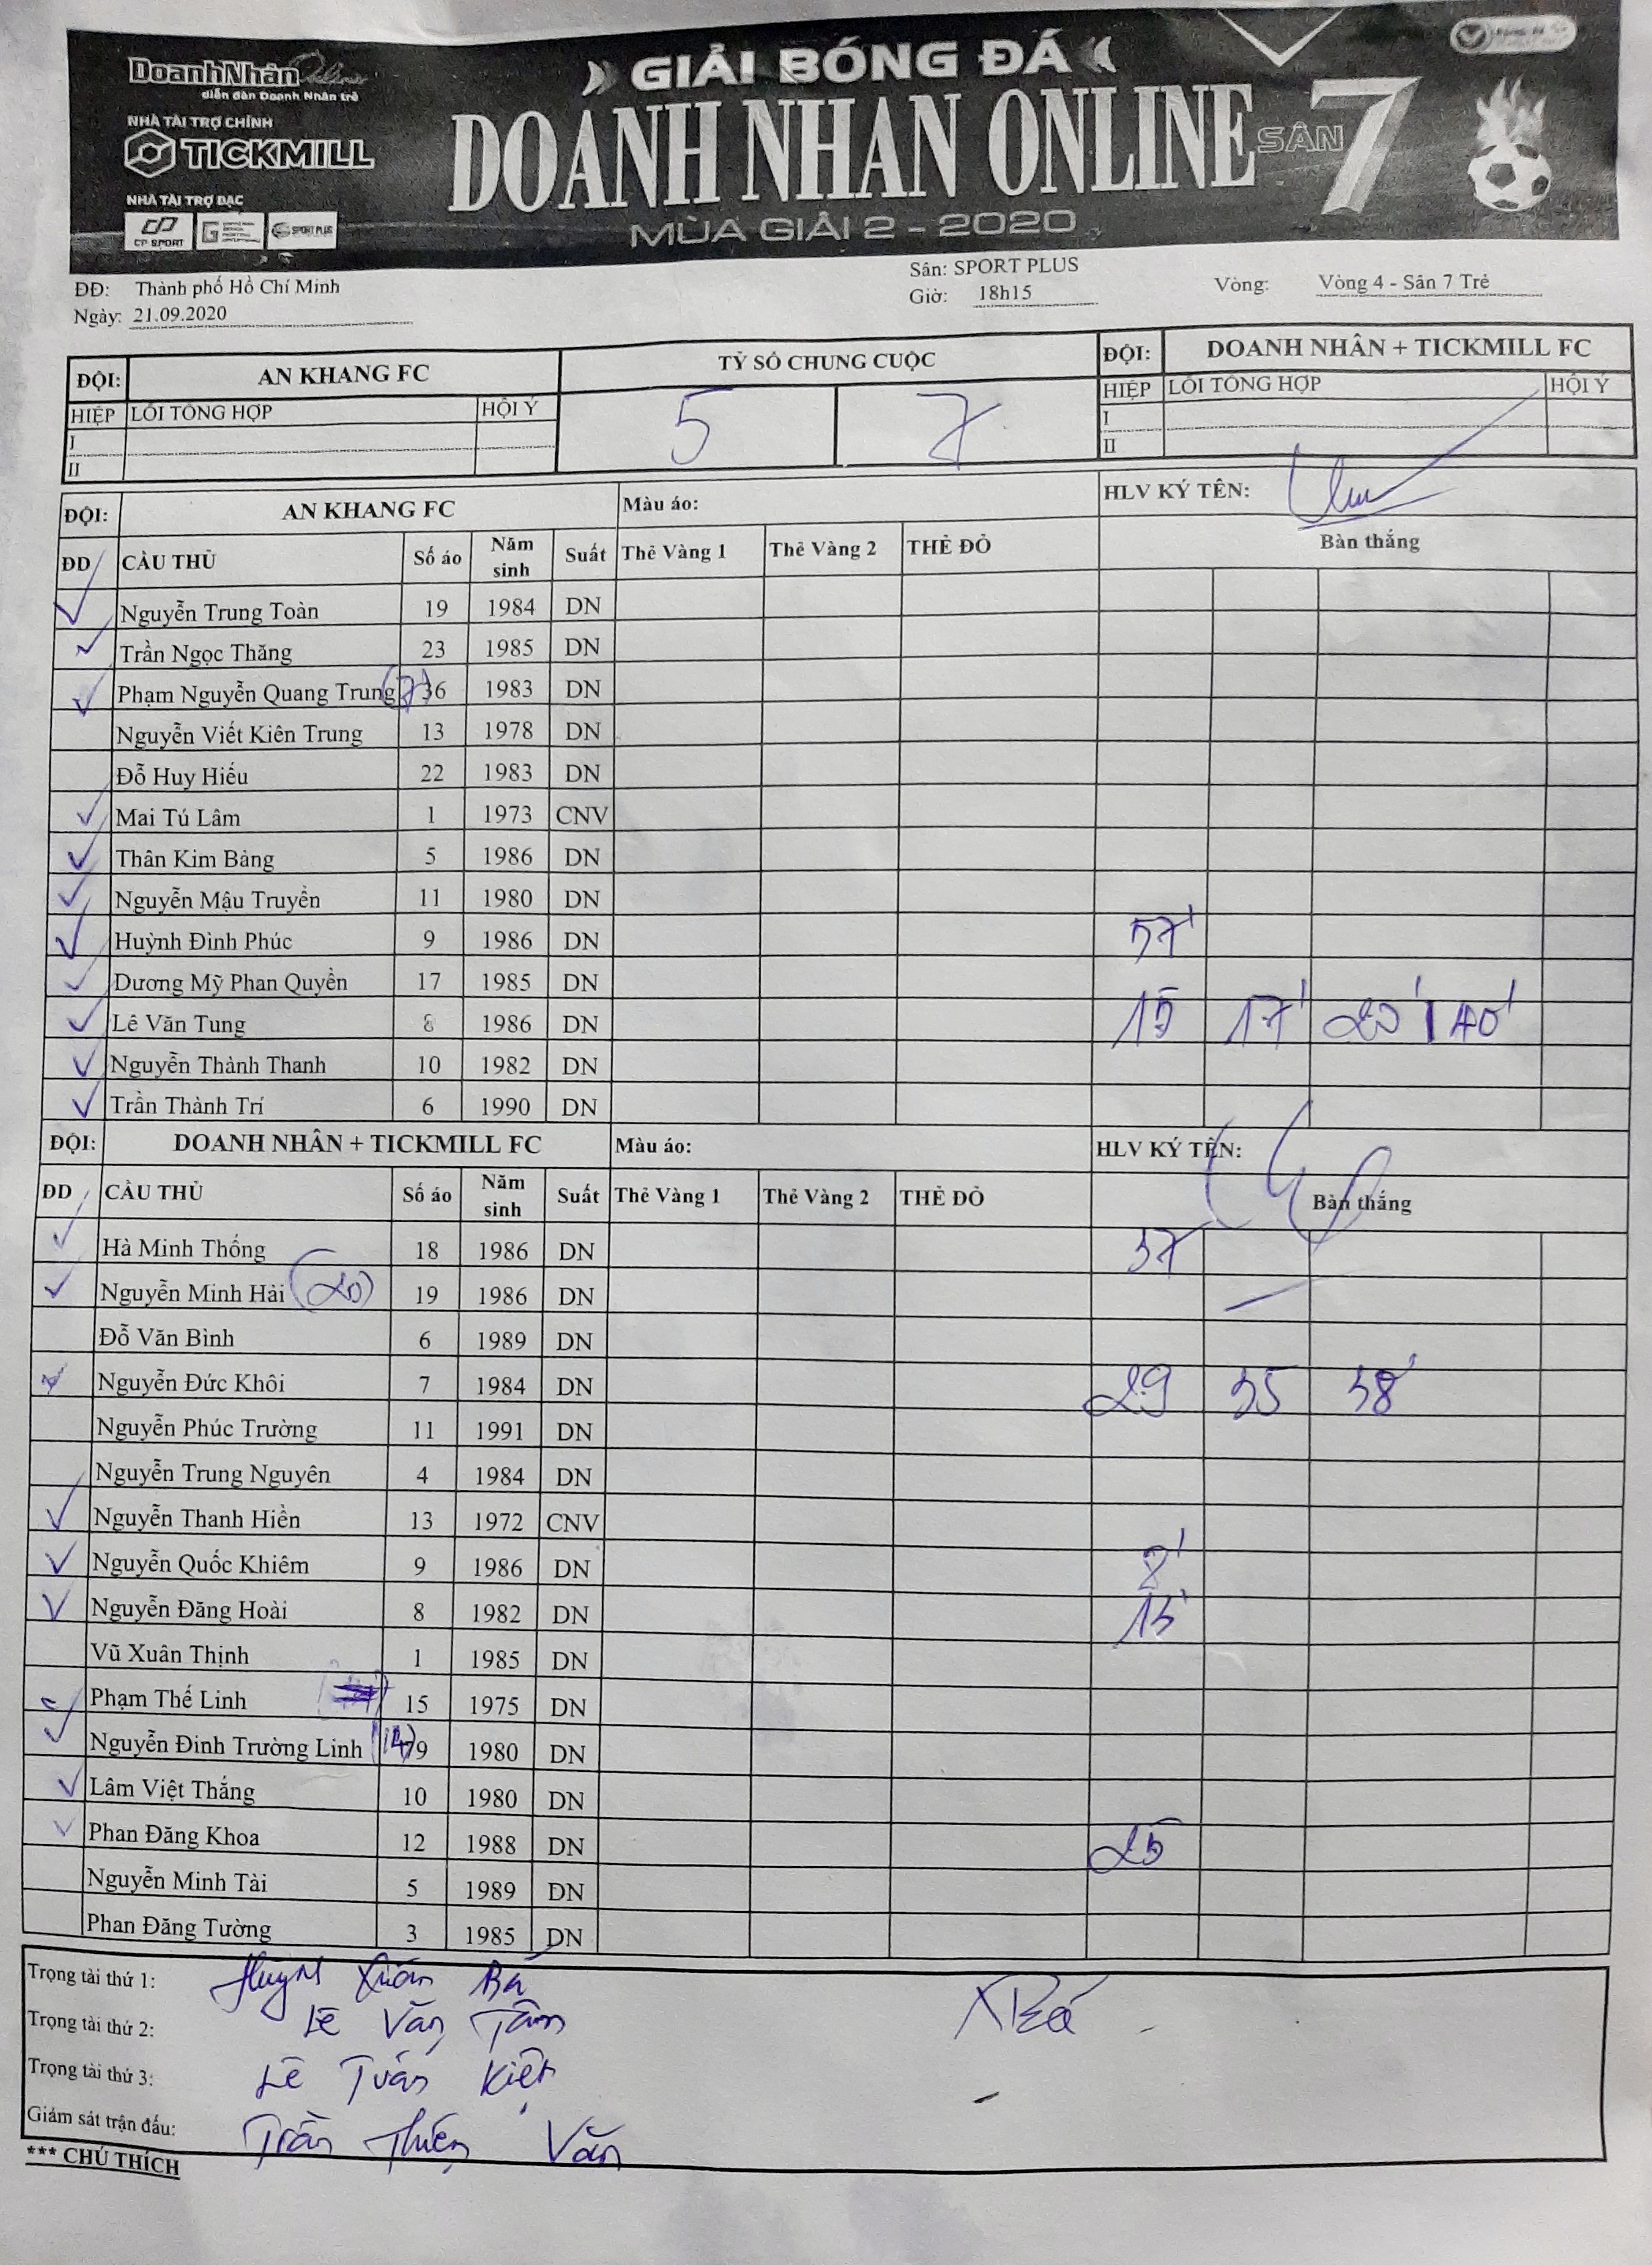 DoanhNhân Online
diễn đàn Doanh Nhân trẻ
NHÀ TÀI TRỢ CHÍNH
TICKMILL
NHÀ TÀI TRỢ BẠC
CP SPORT
SPORT PLUS
GIẢI BÓNG ĐÁ
DOANH NHAN ONLINE
SÂN 7
MÙA GIẢI 2 - 2020
ĐĐ: Thành phố Hồ Chí Minh
Ngày: 21.09.2020
Sân: SPORT PLUS
Giờ: 18h15
Vòng: Vòng 4 - Sân 7 Trẻ
ĐỘI: AN KHANG FC TỶ SỐ CHUNG CUỘC ĐỘI: DOANH NHÂN + TICKMILL FC
HIỆP LỖI TỔNG HỢP HỘI Ý 5 7 HIỆP LỖI TỔNG HỢP HỘI Ý
I I
II II
ĐỘI: AN KHANG FC Màu áo: HLV KÝ TÊN:
ĐD CẦU THỦ Số áo Năm sinh Suất Thẻ Vàng 1 Thẻ Vàng 2 THẺ ĐỎ Bàn thắng
Nguyễn Trung Toàn 19 1984 DN
Trần Ngọc Thăng 23 1985 DN
Phạm Nguyễn Quang Trung (7) 36 1983 DN
Nguyễn Viết Kiên Trung 13 1978 DN
Đỗ Huy Hiếu 22 1983 DN
Mai Tú Lâm 1 1973 CNV
Thân Kim Bảng 5 1986 DN
Nguyễn Mậu Truyền 11 1980 DN
Huỳnh Đình Phúc 9 1986 DN 57'
Dương Mỹ Phan Quyền 17 1985 DN
Lê Văn Tung 8 1986 DN 15 17' 20' 40'
Nguyễn Thành Thanh 10 1982 DN
Trần Thành Trí 6 1990 DN
ĐỘI: DOANH NHÂN + TICKMILL FC Màu áo: HLV KÝ TÊN:
ĐD CẦU THỦ Số áo Năm sinh Suất Thẻ Vàng 1 Thẻ Vàng 2 THẺ ĐỎ Bàn thắng
Hà Minh Thống 18 1986 DN 37
Nguyễn Minh Hải (20) 19 1986 DN
Đỗ Văn Bình 6 1989 DN
Nguyễn Đức Khôi 7 1984 DN 29 35 38'
Nguyễn Phúc Trường 11 1991 DN
Nguyễn Trung Nguyên 4 1984 DN
Nguyễn Thanh Hiền 13 1972 CNV
Nguyễn Quốc Khiêm 9 1986 DN 8'
Nguyễn Đăng Hoài 8 1982 DN 15'
Vũ Xuân Thịnh 1 1985 DN
Phạm Thế Linh 15 1975 DN
Nguyễn Đinh Trường Linh (14) 79 1980 DN
Lâm Việt Thắng 10 1980 DN
Phan Đăng Khoa 12 1988 DN 25
Nguyễn Minh Tài 5 1989 DN
Phan Đăng Tường 3 1985 DN
Trọng tài thứ 1: Huỳnh Xuân Bá
XBá
Trọng tài thứ 2: Lê Văn Tâm
Trọng tài thứ 3: Lê Tuấn Kiệt
Giám sát trận đấu: Trần Thiện Văn
*** CHÚ THÍCH